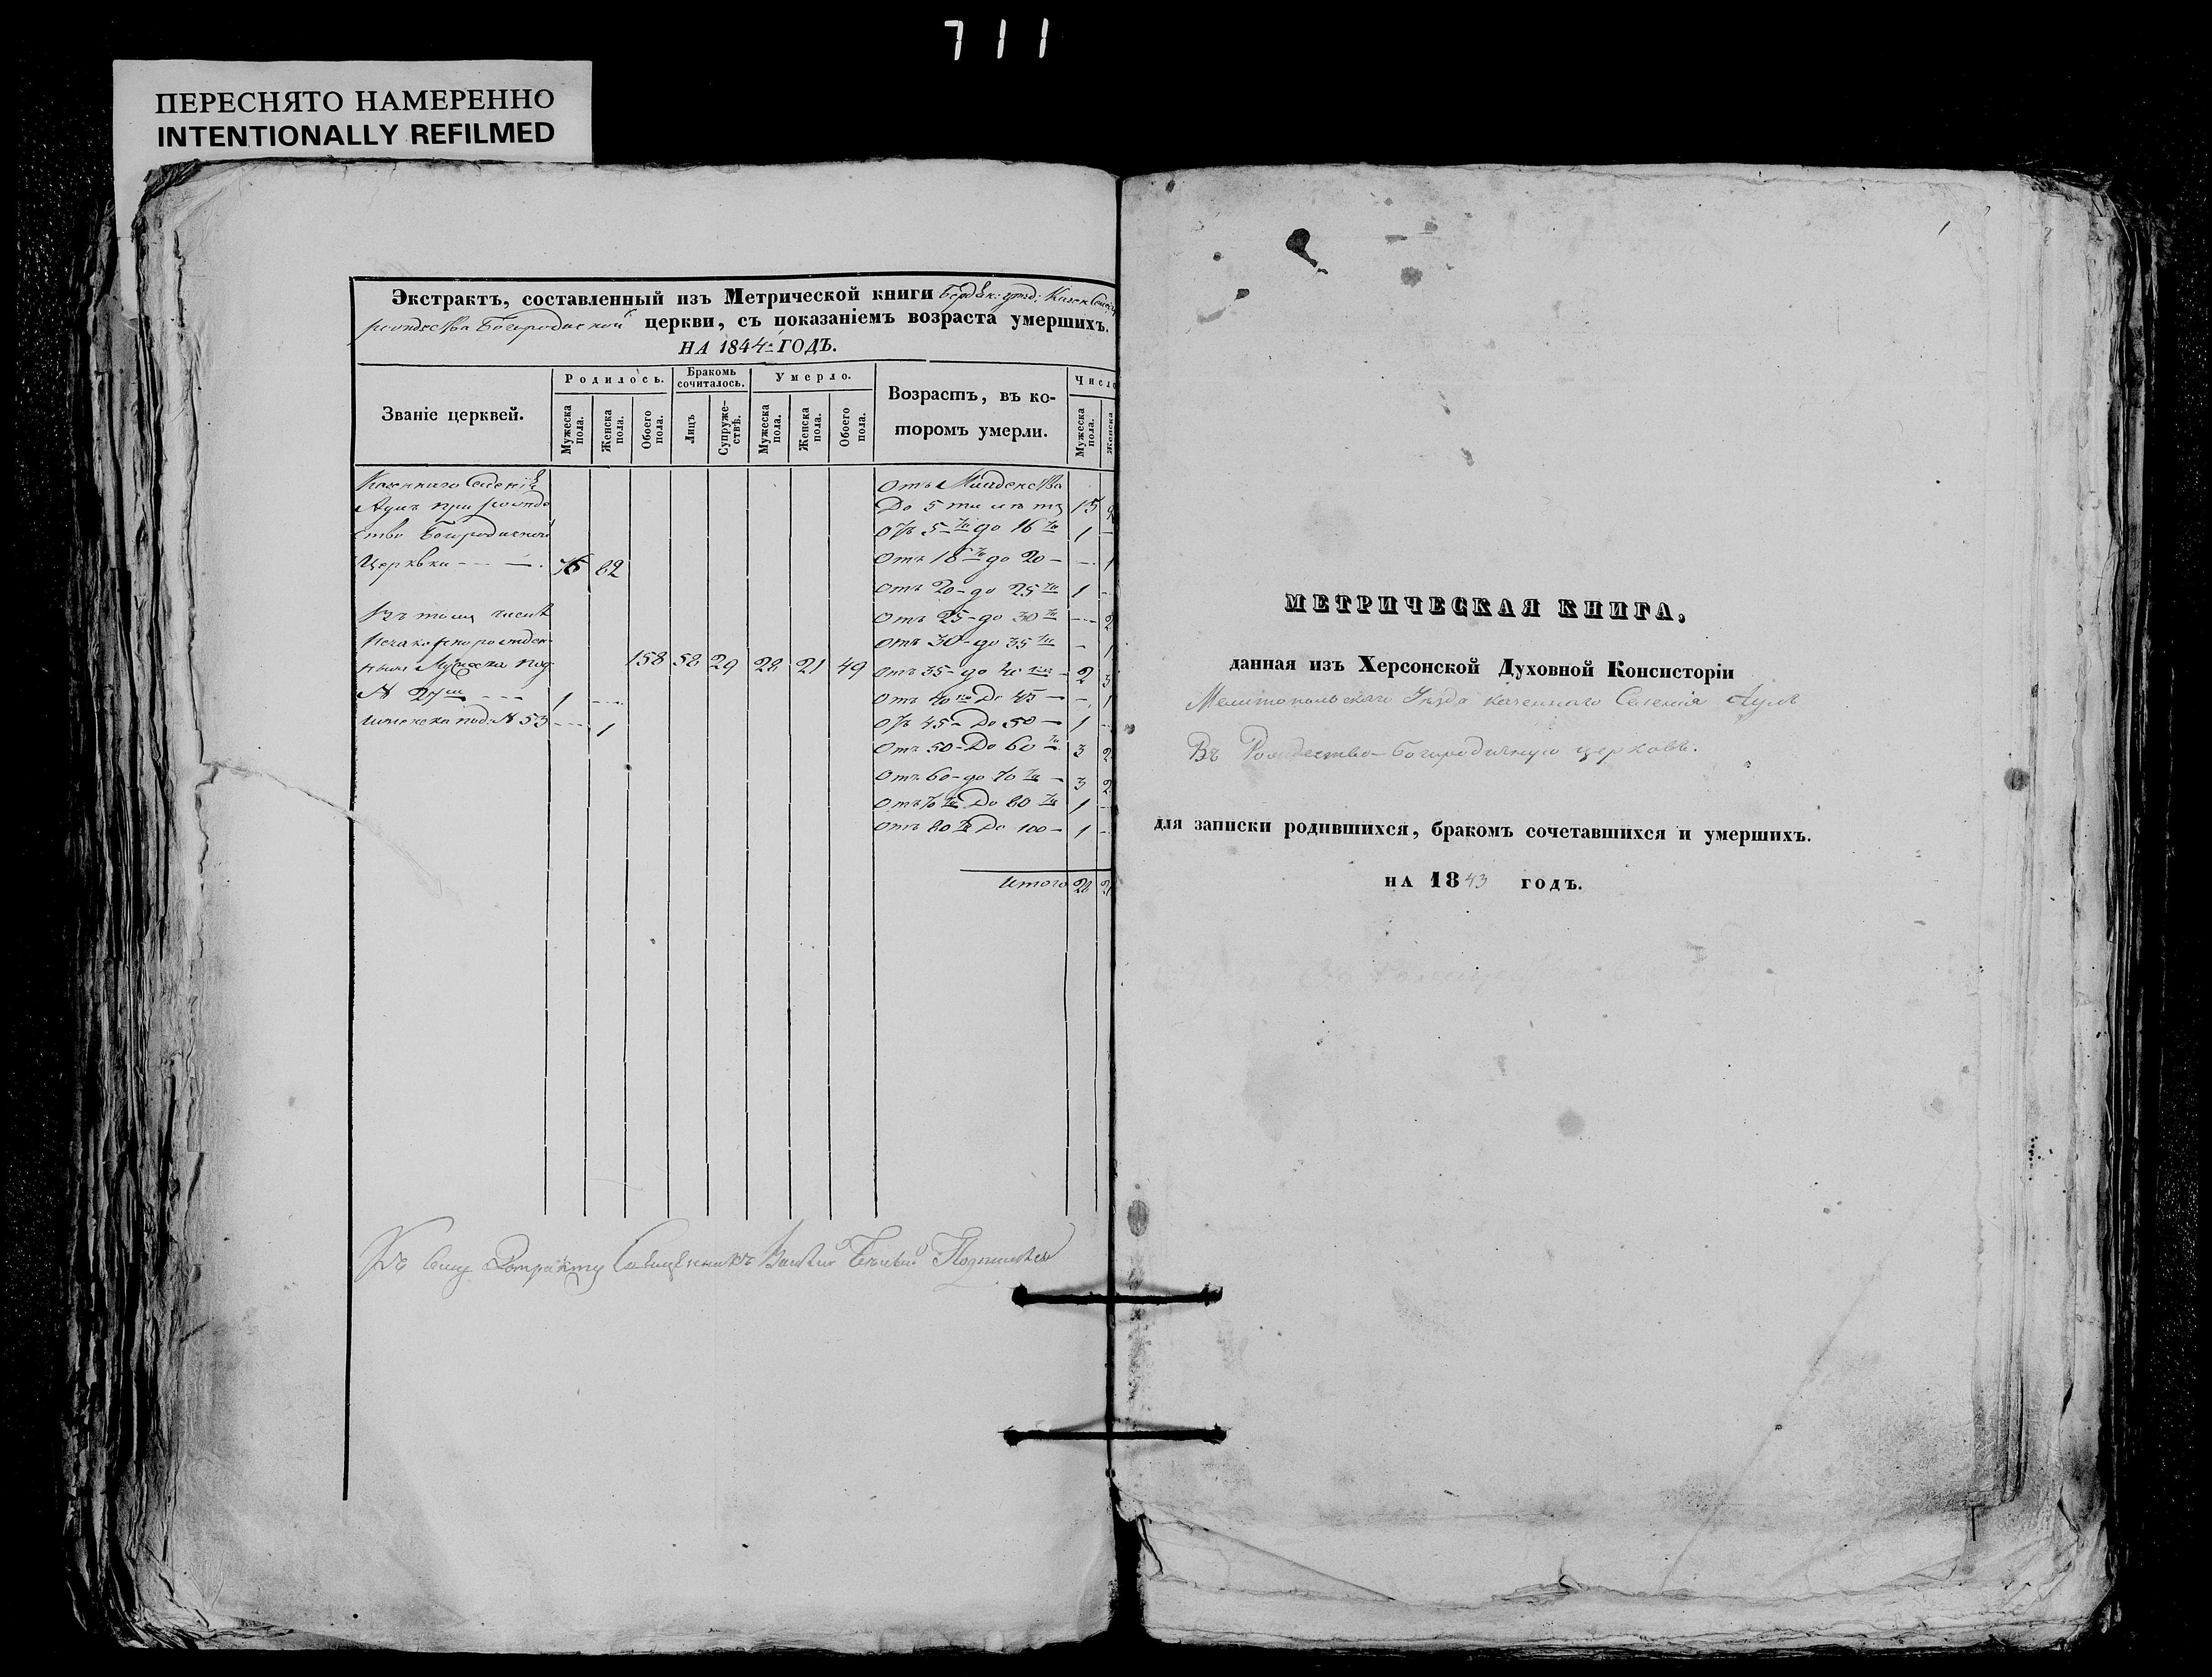 711
ПЕРЕСНЯТО НАМЕРЕННО
INTENTIONALLY REFILMED
Экстрактъ, составленный изъ Метрической книги Бердян: уезд: Казен Селен
рождества Богородиской церкви, съ показаніемъ возраста умершихъ.
НА 1844. ГОДЪ.
Званіе церквей.
Родилось.
Бракомъ сочиталось.
Умерло.
Возрастъ, въ которомъ умерли.
Число
Мужеска пола.
Женска пола.
Обоего пола.
Лицъ
Супружествъ.
Мужеска пола.
Женска пола.
Обоего пола.
Мужеска пола.
Женска
Казеннаго Селенія
Аулъ при рожде
ство Богородиской
Церкви 76 82
Въ томъ числѣ
Незаконнорожден
ныхъ Мужеска под
№ 27 1
женска под: № 53 1
158 58 29 28 21 49
Отъ Младенства
До 5 ти лѣтъ 15
Отъ 5 до 16 1
Отъ 18 до 20 — 1
Отъ 20 до 25 1
Отъ 25 до 30 — 2
Отъ 30 до 35 — 1
Отъ 35 до 40 2 3
Отъ 40 До 45 — 1
Отъ 45 До 50 — 1
Отъ 50 До 60 3 2
Отъ 60 до 70 — 3 2
Отъ 70 До 80 1
Отъ 80 До 100 — 1
Итого 28 21
Къ сему Экстракту Священникъ Подписался
МЕТРИЧЕСКАЯ КНИГА,
данная изъ Херсонской Духовной Консисторіи
Мелитопольскаго Уезда казеннаго Селенія Аулъ
Въ Рождество-Богородичную церковь.
для записки родившихся, бракомъ сочетавшихся и умершихъ.
НА 1843 ГОДЪ.